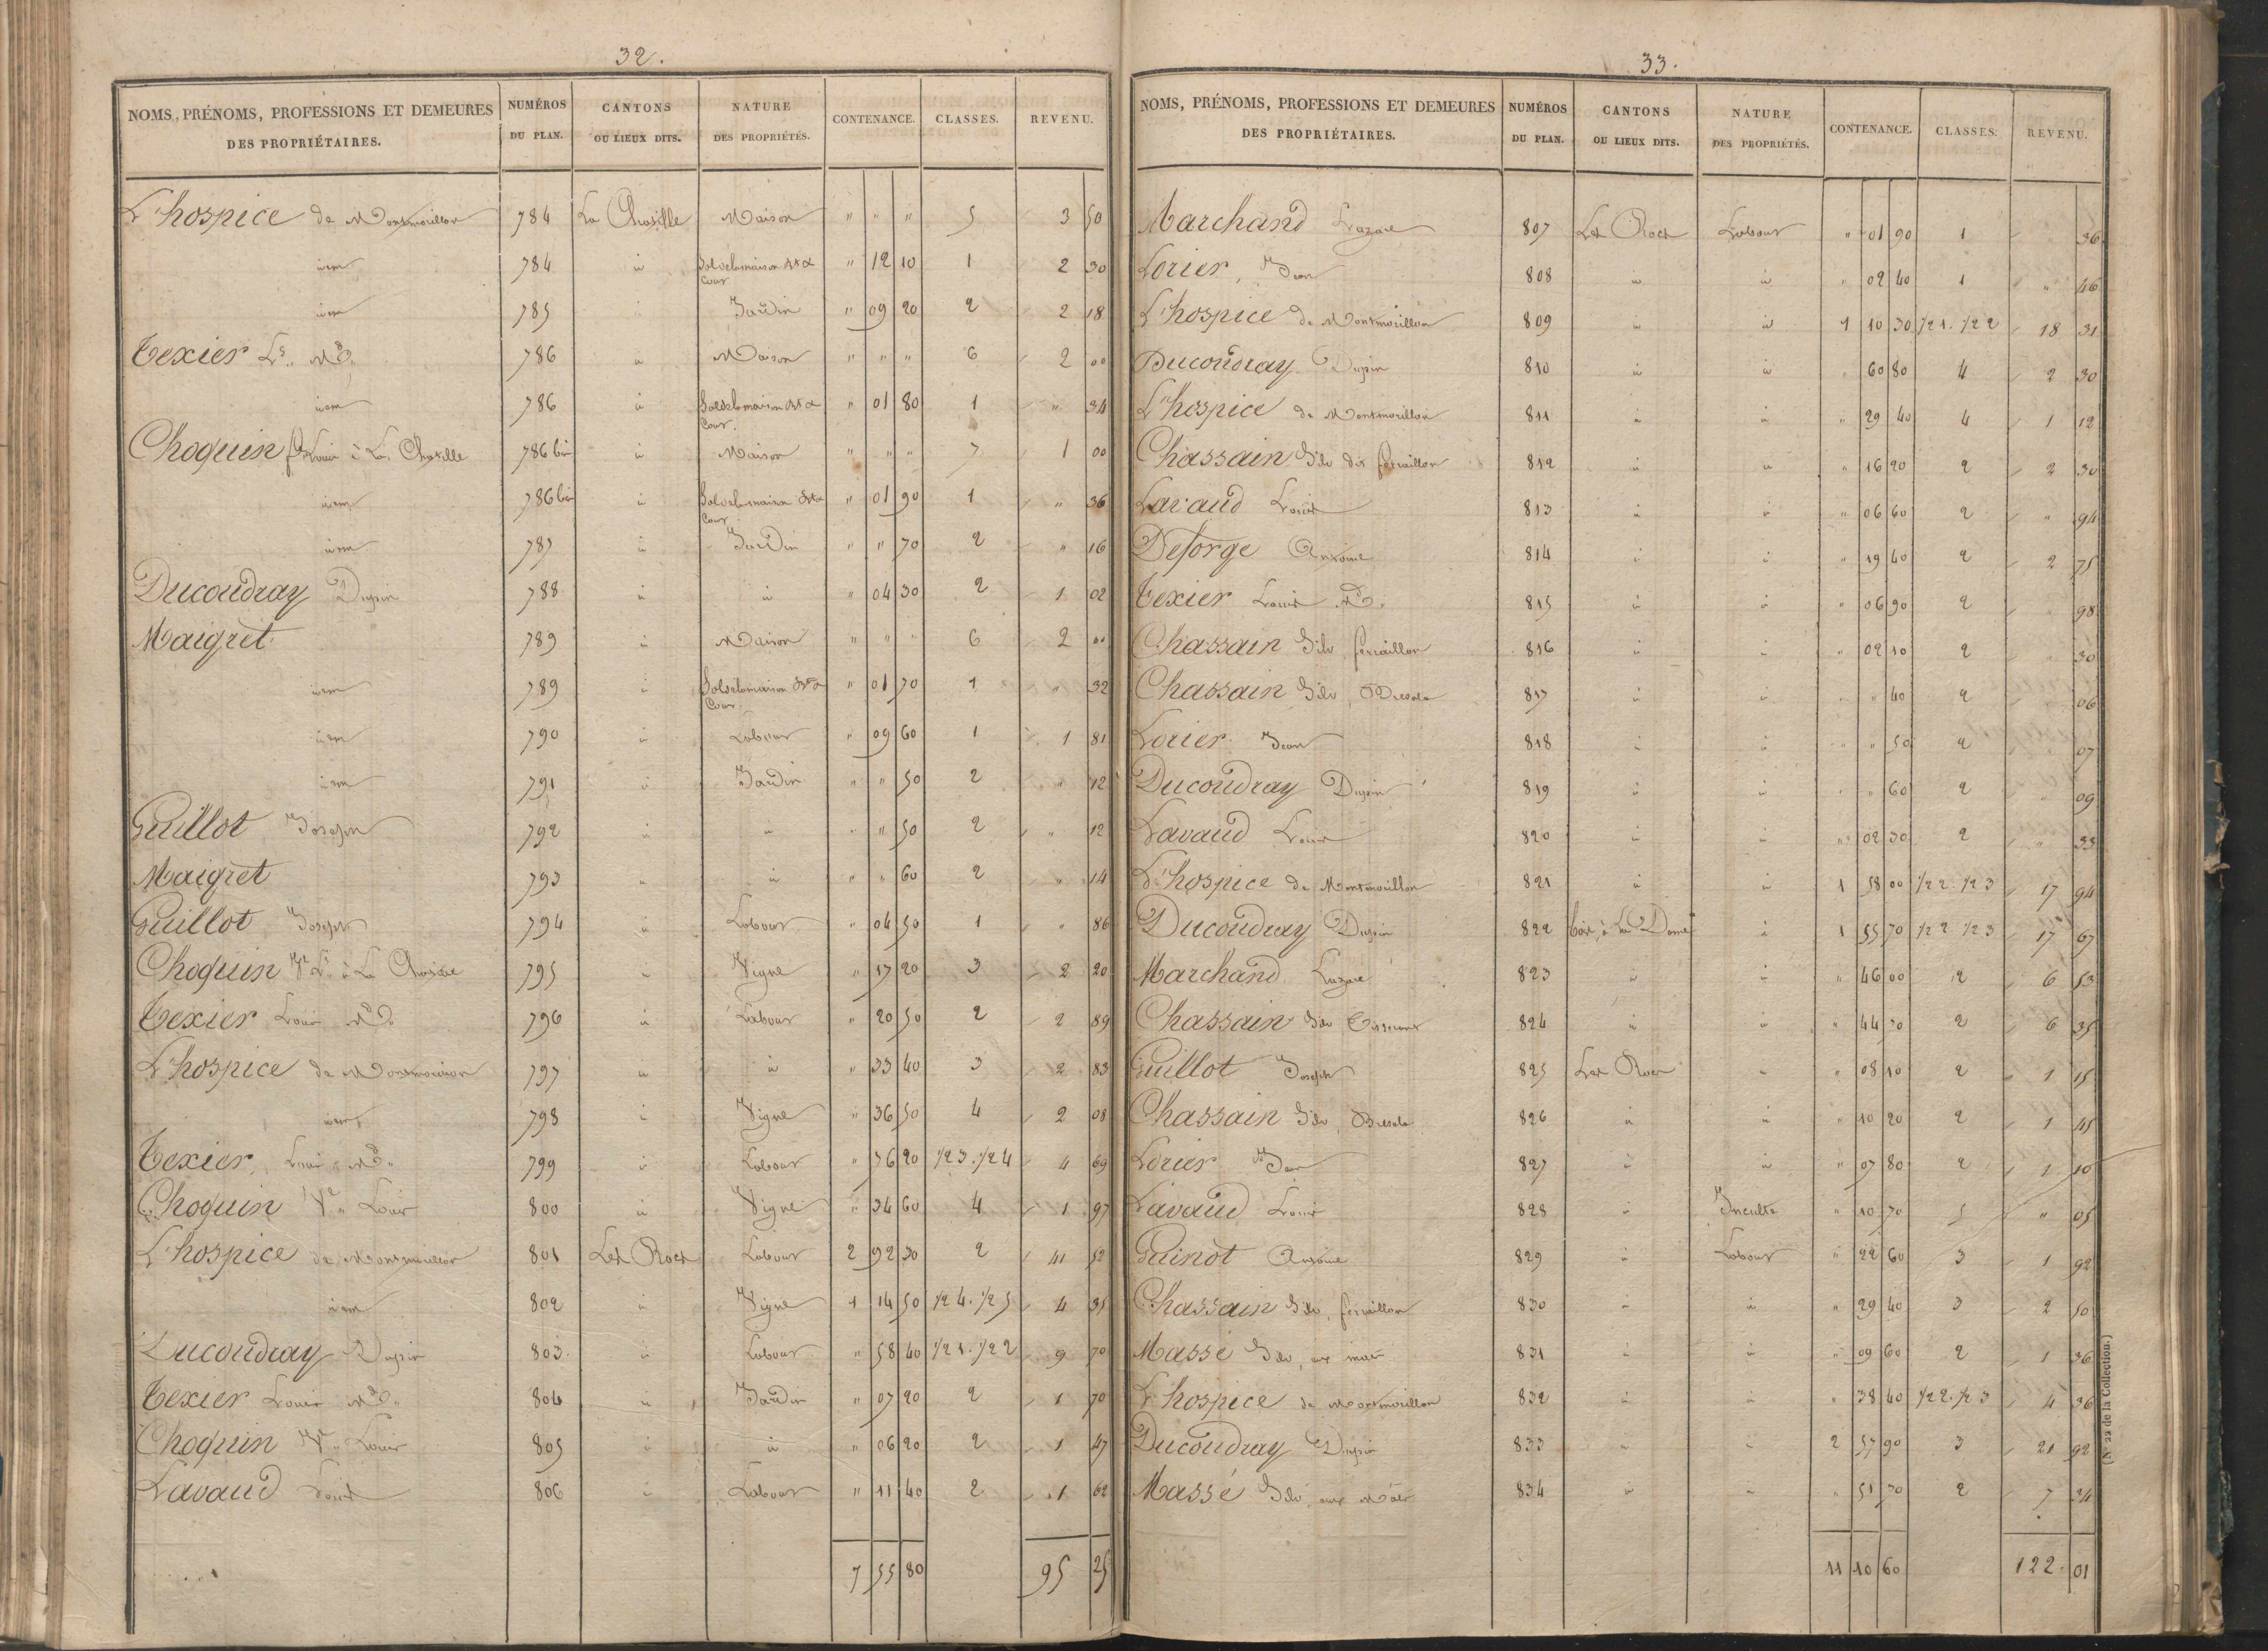 32.
NOMS, PRÉNOMS, PROFESSIONS ET DEMEURES DES PROPRIÉTAIRES. NUMÉROS DU PLAN. CANTONS OU LIEUX DITS. NATURE DES PROPRIÉTÉS. CONTENANCE. CLASSES. REVENU.
L'hospice de Montmorillon 784 La Chaville Maison " " " 5 3 50
idem 784 id Sol de la maison Bt & Cour " 12 10 1 2 30
idem 785 id Jardin " 09 20 2 2 18
Texier Ls. Md. 786 id Maison " " " 6 2 00
idem 786 id Sol de la maison Bt & Cour " 01 80 1 " 34
Choquin Louis à La 786 bis id Maison " " " 7 1 00
idem 786 bis id Sol de la maison Bt & Cour " 01 90 1 " 36
idem 787 id Jardin " " 70 2 " 16
Ducoudray Dupin 788 id id " 04 30 2 1 02
Maigret 789 id Maison " " " 6 2 00
idem 789 id Sol de la maison Bt & Cour " 01 70 1 " 32
idem 790 id Labour " 09 60 1 1 81
idem 791 id Jardin " " 50 2 " 12
Guillot Joseph 792 id id " " 50 2 " 12
Maigret 793 id id " " 60 2 " 14
Guillot Joseph 794 id Labour " 04 50 1 " 86
Choquin Ve Ls à La 795 id Vigne " 17 20 3 2 20
Texier Louis Md. 796 id Labour " 20 50 2 2 89
L'hospice de Montmorillon 797 id id " 33 40 3 2 83
idem 798 id Vigne " 36 50 4 2 08
Texier, Louis Md. 799 id Labour " 76 20 1/2 3. 1/2 4 4 69
Choquin Ve Louis 800 id Vigne " 34 60 4 1 97
L'hospice de Montmorillon 801 Les Rocs Labour 2 92 30 2 41 52
idem 802 id Vigne 1 14 50 1/2 4. 1/2 5 4 35
Ducoudray Dupin 803 id Labour " 58 40 1/2 1. 1/2 2 9 70
Texier Louis Md. 804 id Jardin " 07 20 2 1 70
Choquin Ve Louis 805 id id " 06 20 2 1 47
Lavaud Louis 806 id Labour " 11 40 2 1 62
7 55 80 95 25
33.
NOMS, PRÉNOMS, PROFESSIONS ET DEMEURES DES PROPRIÉTAIRES. NUMÉROS DU PLAN. CANTONS OU LIEUX DITS. NATURE DES PROPRIÉTÉS. CONTENANCE. CLASSES. REVENU.
Marchand Lazare 807 Les Rocs Labour " 01 90 1 " 36
Lorier, Jean 808 id id " 02 40 1 " 46
L'hospice de Montmorillon 809 id id 1 10 30 1/2 1. 1/2 2 18 31
Ducoudray Dupin 810 id id " 60 80 4 2 30
L'hospice de Montmorillon 811 id id " 29 40 4 1 12
Chassain Silv dit ferraillon 812 id id " 16 20 2 2 30
Lavaud Louis 813 id id " 06 60 2 " 94
Deforge Antoine 814 id id " 19 40 2 2 75
Texier Louis Md. 815 id id " 06 90 2 " 98
Chassain Silv, ferraillon 816 id id " 02 10 2 " 30
Chassain Silv, 817 id id " " 40 2 " 06
Lorier Jean 818 id id " " 50 2 " 07
Ducoudray Dupin 819 id id " " 60 2 " 09
Lavaud Louis 820 id id " 02 30 2 " 33
L'hospice de Montmorillon 821 id id 1 58 00 1/2 2. 1/2 3 17 94
Ducoudray Dupin 822 bois à la Dame id 1 55 70 1/2 2 1/2 3 17 67
Marchand Lazare 823 id id " 46 00 2 6 53
Chassain Silv Tisserant 824 id id " 44 70 2 6 35
Guillot Joseph 825 Les Rocs id " 08 10 2 1 15
Chassain Silv, 826 id id " 10 20 2 1 45
Lorier Jean 827 id id " 07 80 2 1 10
Lavaud Louis 828 id Inculte " 10 70 5 " 05
Guinot Antoine 829 id Labour " 22 60 3 1 92
Chassain Silv, ferraillon 830 id id " 29 40 3 2 50
Massé Silv, aux mats 831 id id " 09 60 2 1 36
L'hospice de Montmorillon 832 id id " 38 40 1/2 2. 1/2 3 4 36
Ducoudray Dupin 833 id id 2 57 90 3 21 92
Massé Silv, aux Mats 834 id id " 51 70 2 7 34
11 10 60 122. 01
(N° 22 de la Collection.)